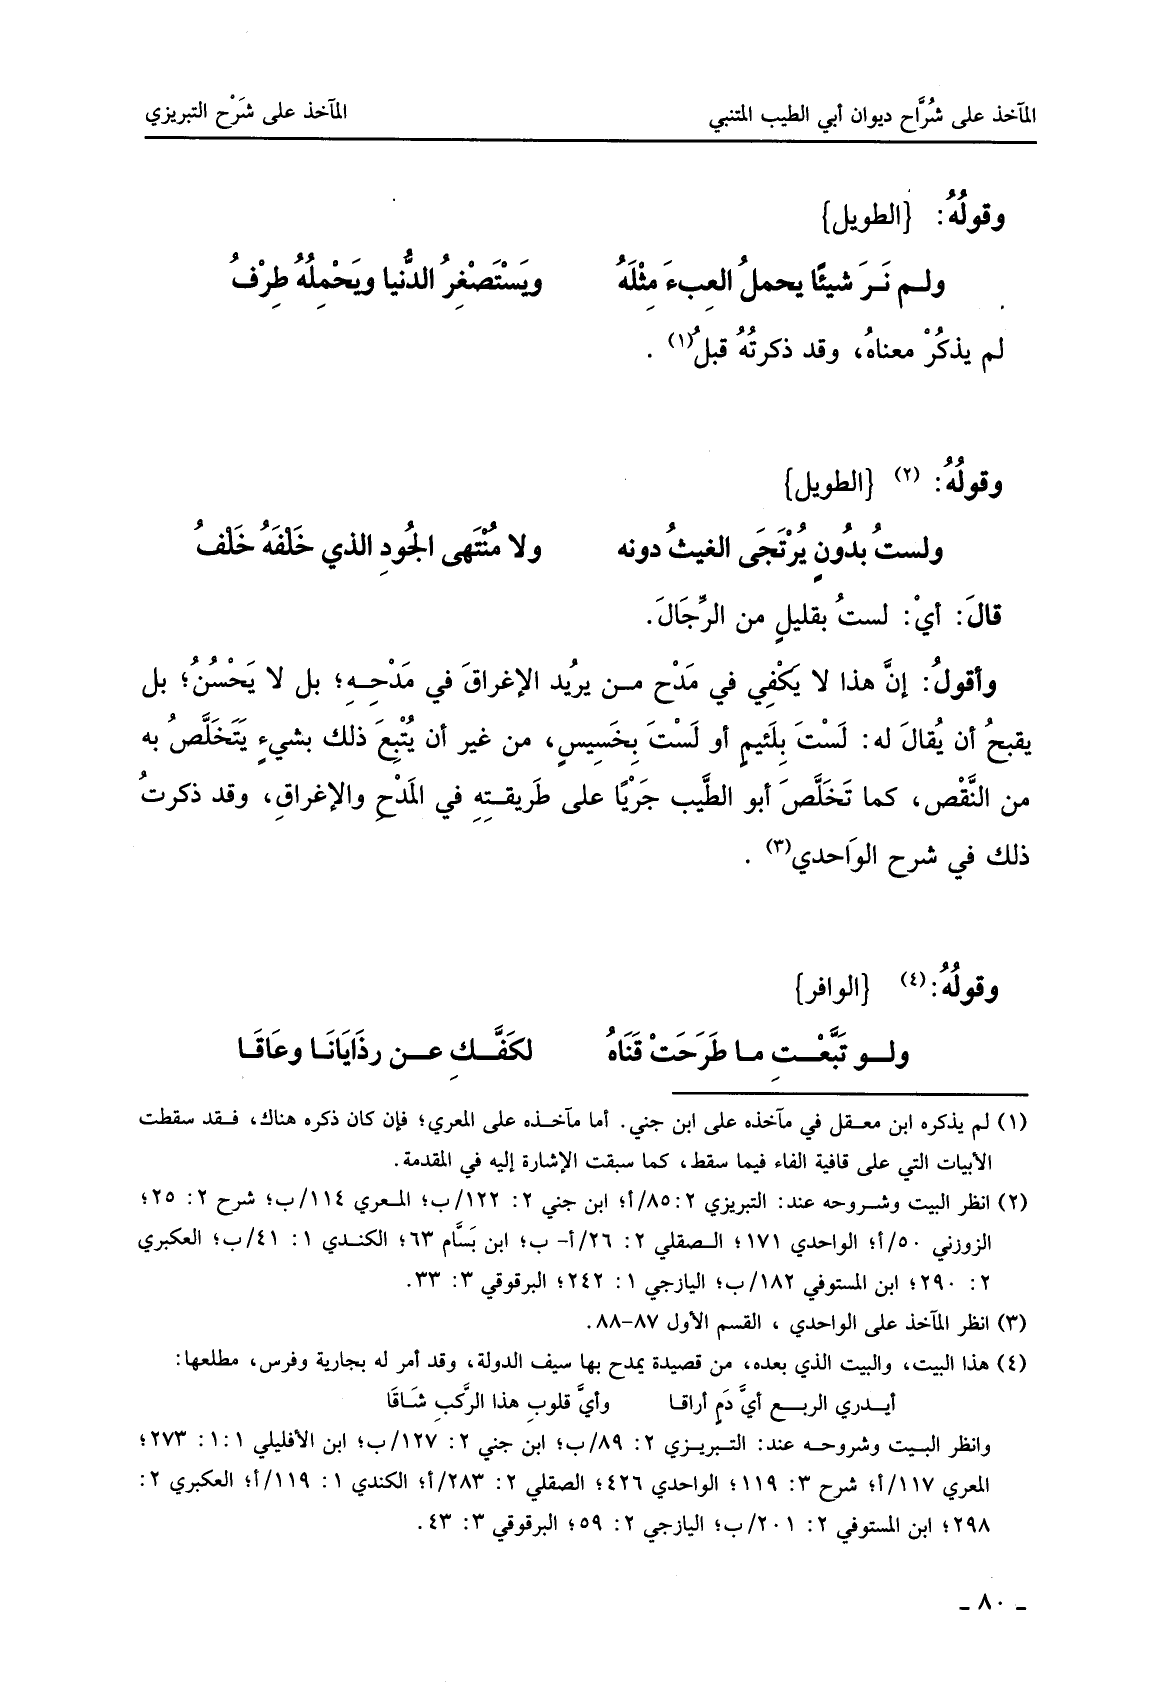 المآخذ على شُرَّاح ديوان أبي الطيب المتنبي المآخذ على شَرْح التبريزي
وقولُهُ: {الطويل}
ولم نَرَ شيئًا يحملُ العِبءَ مِثْلَهُ ويَسْتَصْغِرُ الدُّنيا ويَحْمِلُهُ طِرْفُ
لم يذكُرْ معناهُ، وقد ذكرتُهُ قبلُ(١) .
وقولُهُ: (٢) {الطويل}
ولستُ بدُونٍ يُرْتَجَى الغيثُ دونه ولا مُنْتَهى الجُودِ الذي خَلْفَهُ خَلْفُ
قالَ: أيْ: لستُ بقليلٍ من الرِّجَالَ.
وأقولُ: إنَّ هذا لا يَكْفِي في مَدْح من يريُد الإغراقَ في مَدْحِهِ؛ بل لا يَحْسُنُ؛ بل
يقبحُ أن يُقالَ له: لَسْتَ بِلَئيمٍ أو لَسْتَ بِخَسِيسٍ، من غير أن يُتْبِعَ ذلك بشيءٍ يَتَخَلَّصُ به
من النَّقْص، كما تَخَلَّصَ أبو الطَّيب جَرْيًا على طَريقتِهِ في المَدْحِ والإغراقِ، وقد ذكرتُ
ذلك في شرح الوَاحدي(٣) .
وقولُهُ:(٤) {الوافر}
ولو تَبَّعْتِ ما طَرَحَتْ قَنَاهُ لكَفَّكِ عن رذَايَانَا وعَاقَا
(١) لم يذكره ابن معقل في مآخذه على ابن جني. أما مآخذه على المعري؛ فإن كان ذكره هناك، فقد سقطت
الأبيات التي على قافية الفاء فيما سقط، كما سبقت الإشارة إليه في المقدمة.
(٢) انظر البيت وشروحه عند: التبريزي ٢: ٨٥/أ؛ ابن جني ٢: ١٢٢/ب؛ المعري ١١٤/ب؛ شرح ٢: ٢٥؛
الزوزني ٥٠/أ؛ الواحدي ١٧١؛ الصقلي ٢: ٢٦/أ- ب؛ ابن بَسَّام ٦٣؛ الكندي ١: ٤١/ب؛ العكبري
٢: ٢٩٠؛ ابن المستوفي ١٨٢/ب؛ اليازجي ١: ٢٤٢؛ البرقوقي ٣: ٣٣.
(٣) انظر المآخذ على الواحدي ، القسم الأول ٨٧-٨٨.
(٤) هذا البيت، والبيت الذي بعده، من قصيدة يمدح بها سيف الدولة، وقد أمر له بجارية وفرس، مطلعها:
أيدري الربع أيَّ دَمٍ أراقا وأيَّ قلوبِ هذا الرَّكبِ شَاقَا
وانظر البيت وشروحه عند: التبريزي ٢: ٨٩/ب؛ ابن جني ٢: ١٢٧/ب؛ ابن الأفليلي ١:١: ٢٧٣؛
المعري ١١٧/أ؛ شرح ٣: ١١٩؛ الواحدي ٤٢٦؛ الصقلي ٢: ٢٨٣/أ؛ الكندي ١: ١١٩/أ؛ العكبري ٢:
٢٩٨؛ ابن المستوفي ٢: ٢٠١/ب؛ اليازجي ٢: ٥٩؛ البرقوقي ٣: ٤٣.
ـ ٨٠ ـ